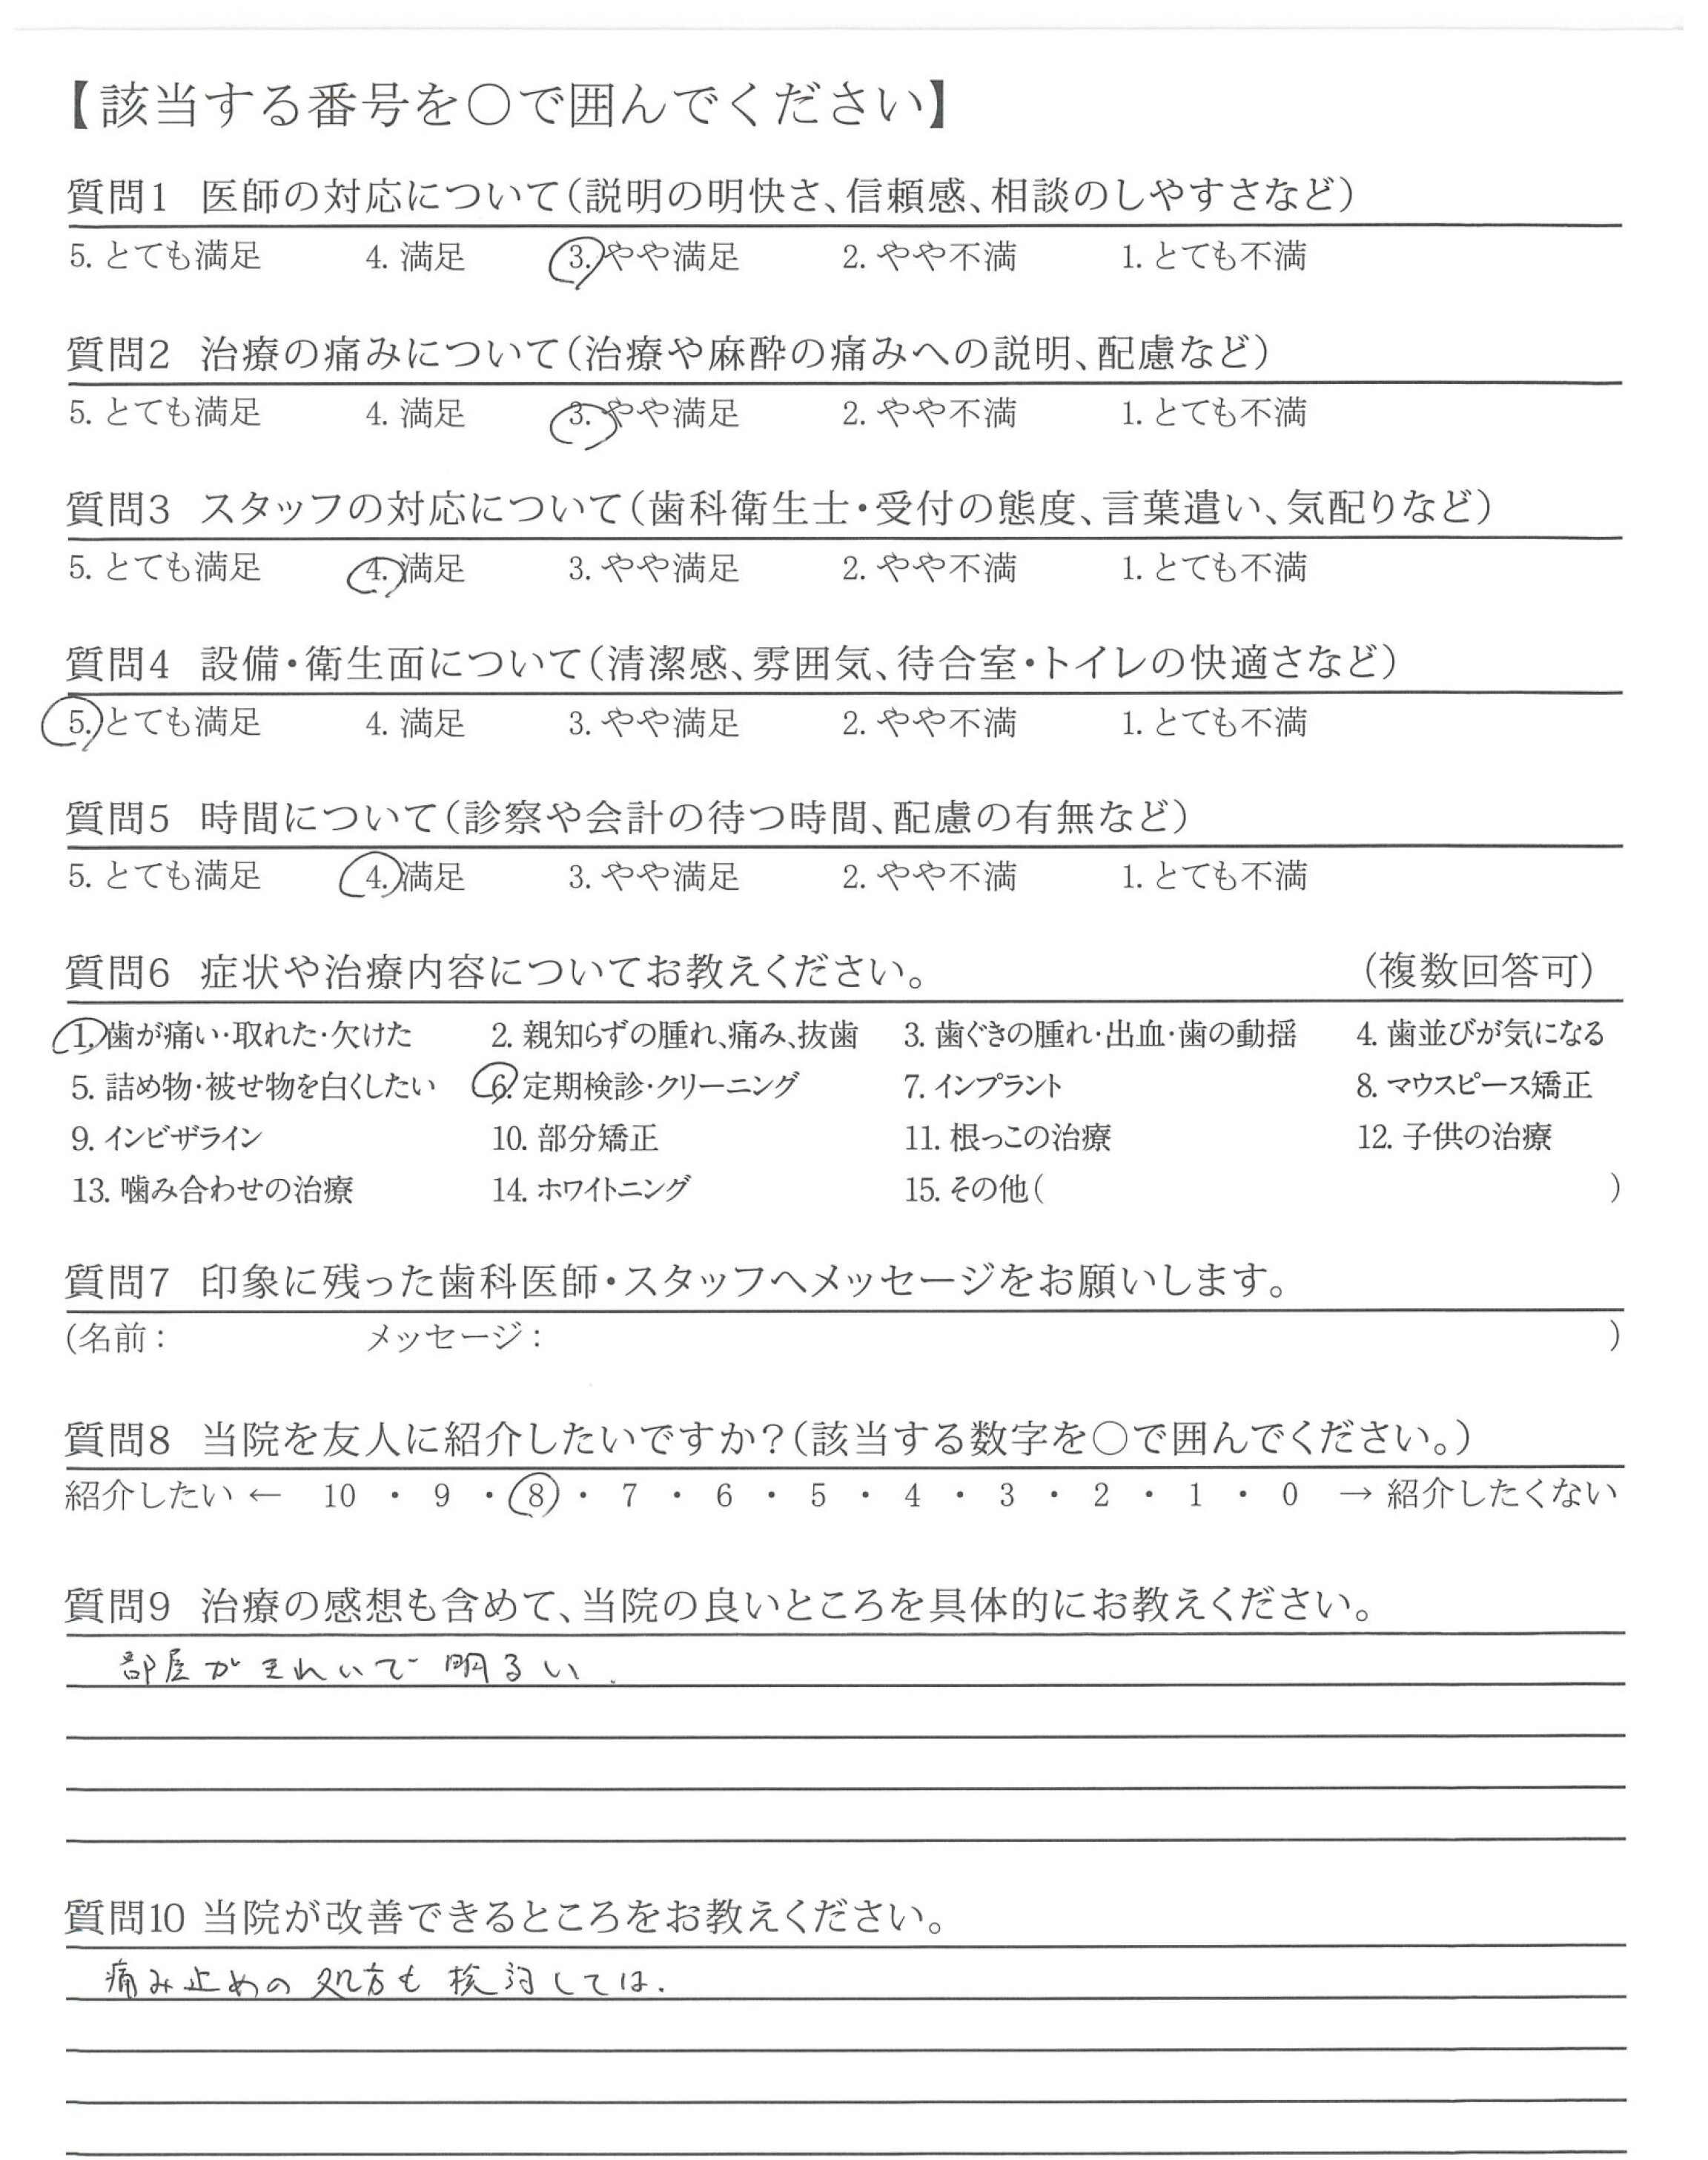 【該当する番号を〇で囲んでください】
質問1 医師の対応について（説明の明快さ、信頼感、相談のしやすさなど）
5. とても満足 4. 満足 3. やや満足 2. やや不満 1. とても不満
質問2 治療の痛みについて（治療や麻酔の痛みへの説明、配慮など）
5. とても満足 4. 満足 3. やや満足 2. やや不満 1. とても不満
質問3 スタッフの対応について（歯科衛生士・受付の態度、言葉遣い、気配りなど）
5. とても満足 4. 満足 3. やや満足 2. やや不満 1. とても不満
質問4 設備・衛生面について（清潔感、雰囲気、待合室・トイレの快適さなど）
5. とても満足 4. 満足 3. やや満足 2. やや不満 1. とても不満
質問5 時間について（診察や会計の待つ時間、配慮の有無など）
5. とても満足 4. 満足 3. やや満足 2. やや不満 1. とても不満
質問6 症状や治療内容についてお教えください。 （複数回答可）
1. 歯が痛い・取れた・欠けた 2. 親知らずの腫れ、痛み、抜歯 3. 歯ぐきの腫れ・出血・歯の動揺 4. 歯並びが気になる
5. 詰め物・被せ物を白くしたい 6. 定期検診・クリーニング 7. インプラント 8. マウスピース矯正
9. インビザライン 10. 部分矯正 11. 根っこの治療 12. 子供の治療
13. 噛み合わせの治療 14. ホワイトニング 15. その他（ ）
質問7 印象に残った歯科医師・スタッフへメッセージをお願いします。
（名前： メッセージ： ）
質問8 当院を友人に紹介したいですか？（該当する数字を〇で囲んでください。）
紹介したい ← 10 ・ 9 ・ 8 ・ 7 ・ 6 ・ 5 ・ 4 ・ 3 ・ 2 ・ 1 ・ 0 → 紹介したくない
質問9 治療の感想も含めて、当院の良いところを具体的にお教えください。
部屋がきれいで明るい.
質問10 当院が改善できるところをお教えください。
痛み止めの処方も検討しては.